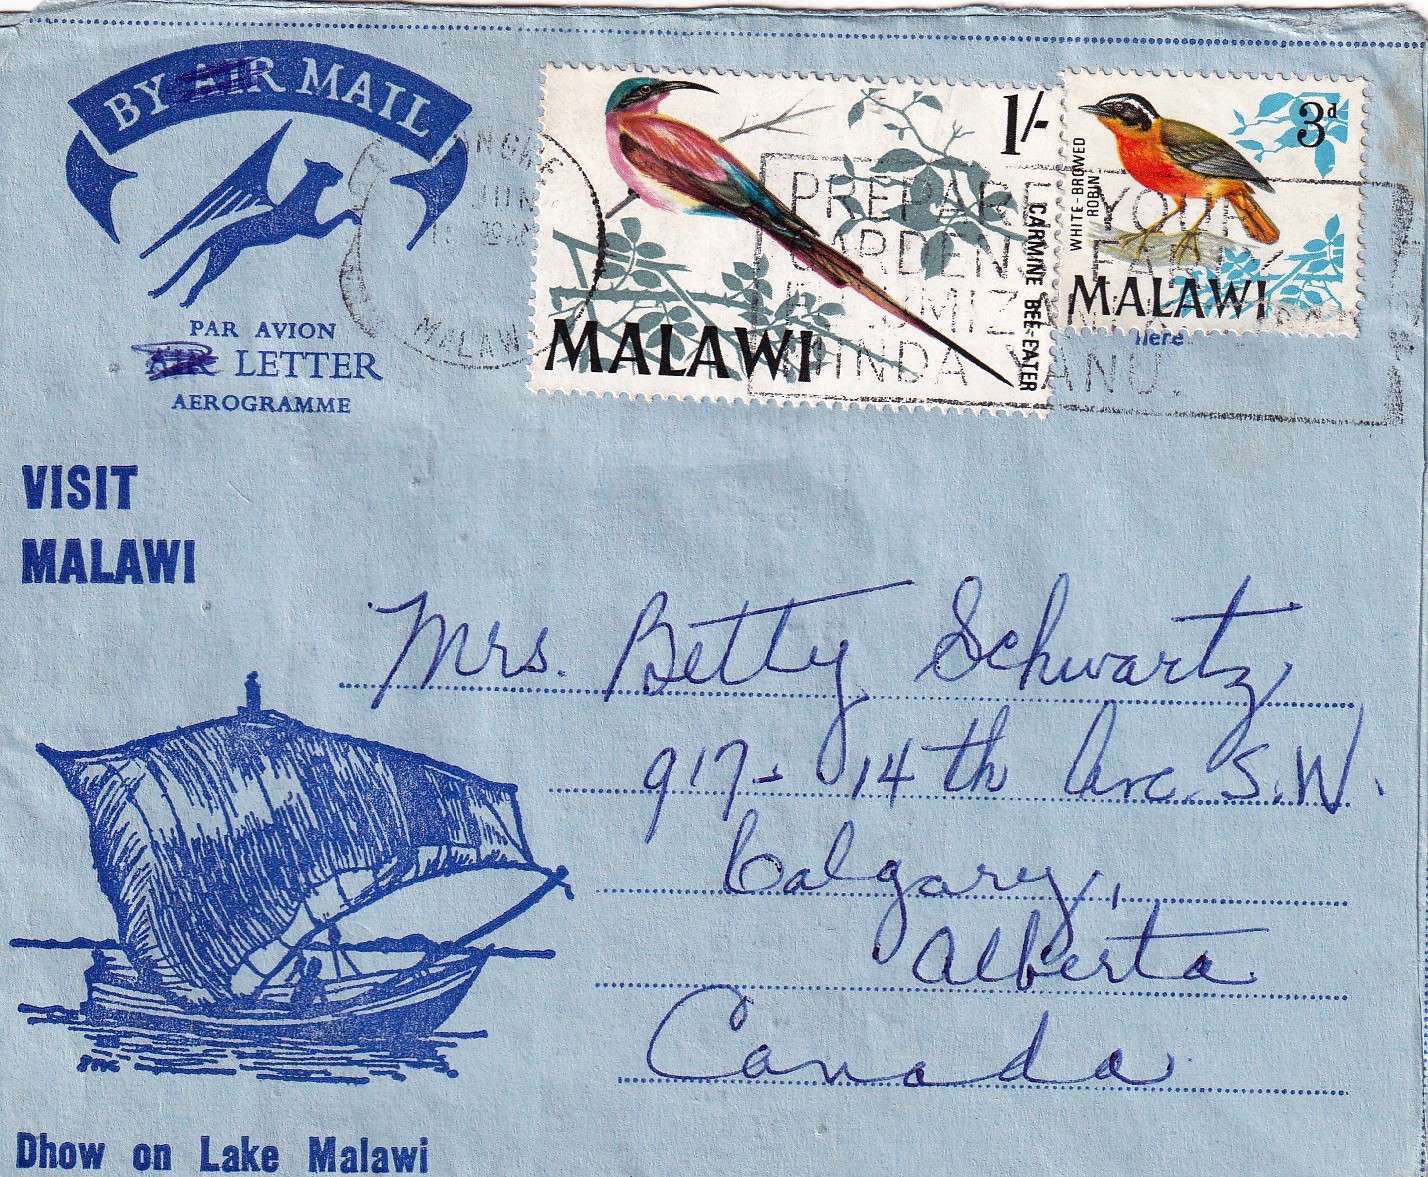 BY AIR MAIL
PAR AVION
AIR LETTER
AEROGRAMME
JUN
MALAWI
1/-
CARMINE BEE-EATER
MALAWI
3d
WHITE-BROWED
ROBIN
MALAWI
here
PREPARE YOUR
GARDENS EARLY
MINDA YANU.
VISIT
MALAWI
Mrs. Betty Schwartz
917-14th Ave. S.W.
Calgary,
Alberta
Canada
Dhow on Lake Malawi